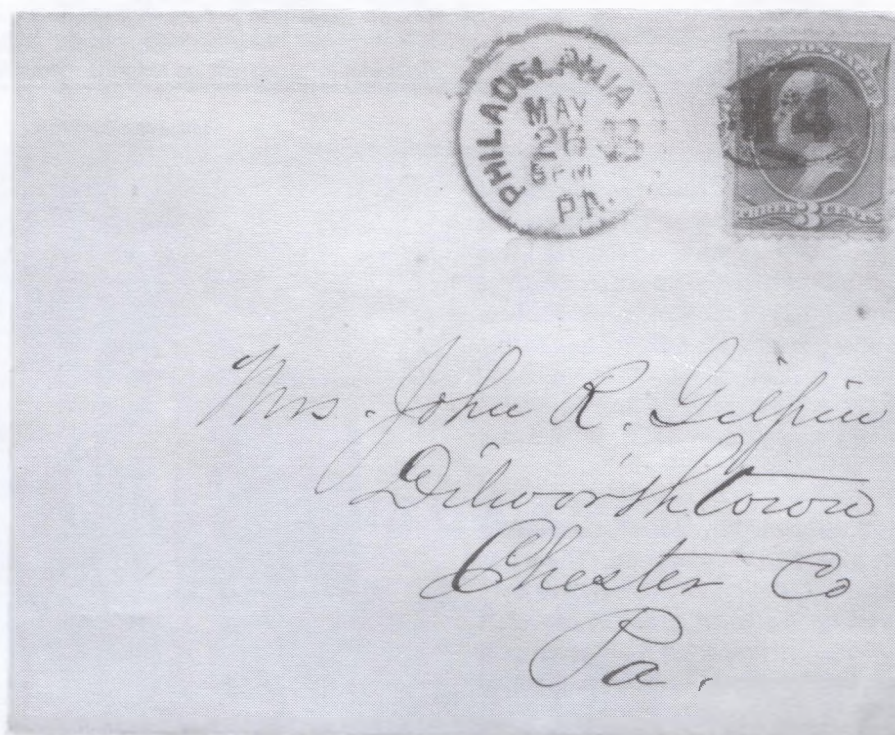 PHILADELPHIA
MAY
26
PA.
U.S. POSTAGE
THREE 3 CENTS
Mrs. John R. Gilpin
Dilworthtown
Chester Co
Pa.